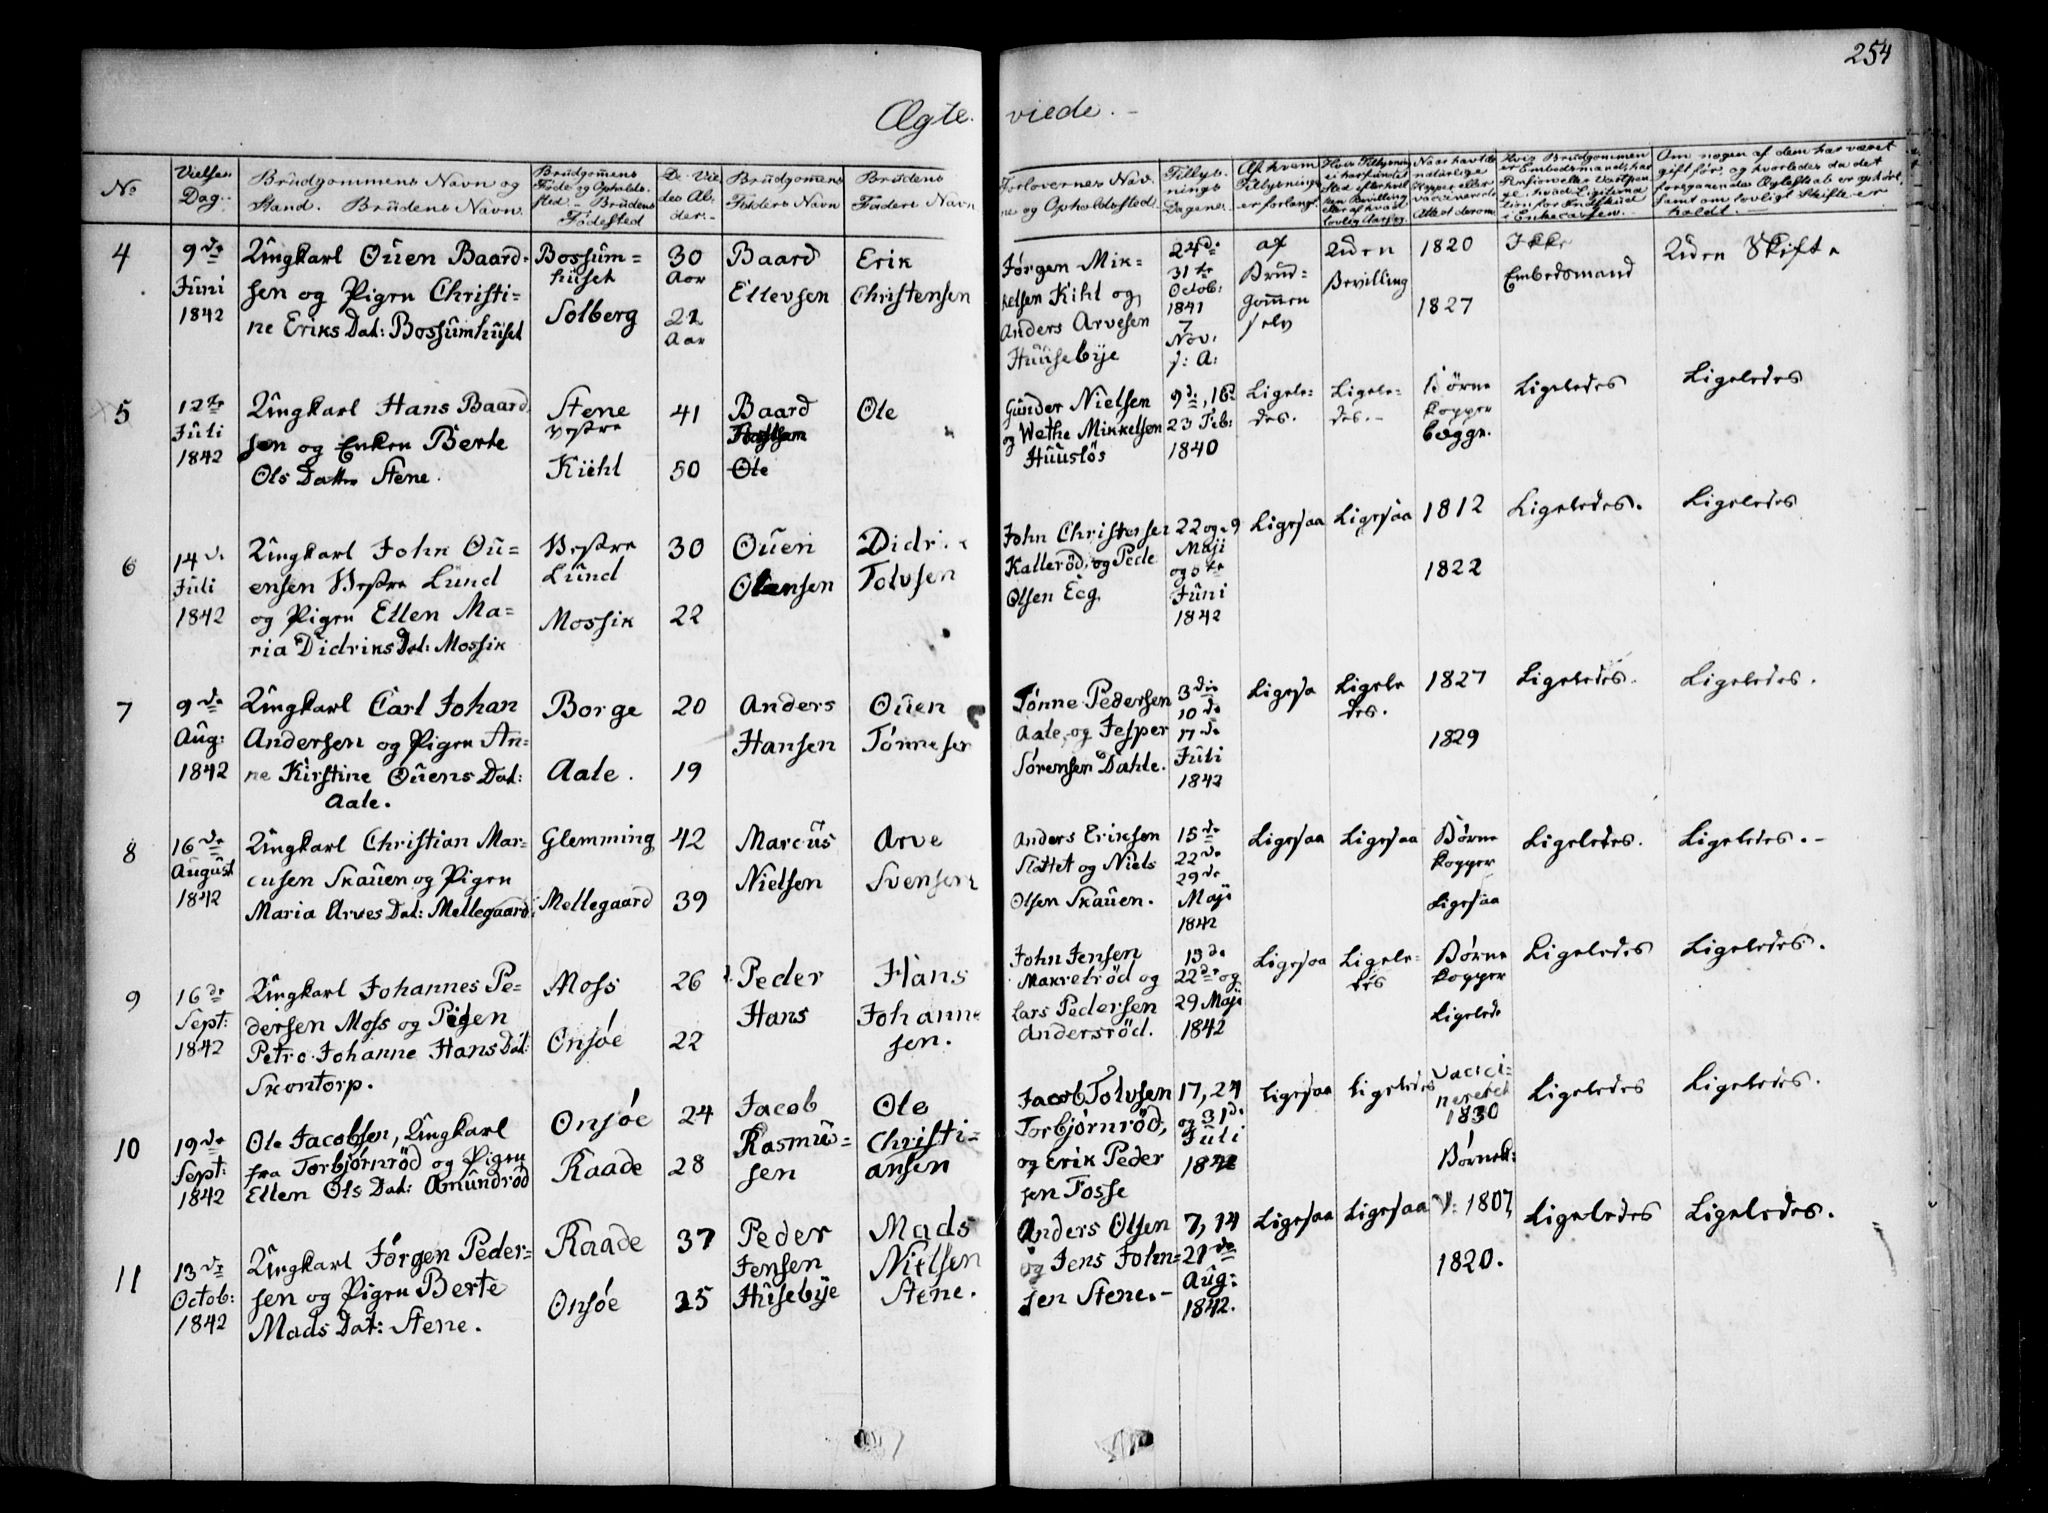 254
Ægte. viede. —
No
Vielses Dag.
Brudgommens Navn og Stand. Brudens Navn.
Brudgomens Føde og Opholdssted. — Brudens Fødested
De Viedes Alder.
Brudgomens Faders Navn
Brudens Faders Navn
Forlovernes Navne og Opholdssted.
Tillysnings Dagene.
Af hvem Tillysningen er forlangt.
4
9de
Juni
1842
Ungkarl Ouen Baard-
sen og Pigen Christi-
ne Eriks Dat: Bossumhuset
Bossum-
huset
Solberg
30
Aar
21
Aar
Baard
Ellevsen
Erik
Christensen
Jørgen Mik-
kelsen Kihl og
Anders Arvesen
Huusebye
24de
31te
Octob:
1841
7
Nov:
s: A:
af
Brud-
gommen
selv
Uden
Bevilling
1820
1827
Ikke
Embedsmand
Uden Skifte
5
12te
Juli
1842
Ungkarl Hans Baard
sen og Enken Berte
Ols Datter Stene.
Stene
vestre
Kiehl
41
50
Baard
Ole
Ole
Gunder Nielsen
og Wethe Mikkelsen
Huusløs
9de, 16de
23 Feb:
1840
Ligele-
des.
Ligele-
des. -
Børne
kopper
begge.
Ligeledes
Ligeledes
6
14de
Juli
1842
Ungkarl John Ou-
ensen Vestre Lund
og Pigen Ellen Ma-
ria Didriks Dat: Mossik
Vestre
Lund
Mossik
30
22
Ouen
Olaensen
Didrik
Tolvsen
John Christensen
Kallerød, og Peder
Olsen Eeg.
22 og 29
Maji
og 5te
Juni
1842
Ligesaa
Ligesaa
1812
1822
Ligeledes.
Ligeledes
7
9de
Aug:
1842
Ungkarl Carl Johan
Andersen og Pigen An-
ne Kirstine Ouens Dat:
Aale.
Borge
Aale.
20
19
Anders
Hansen
Ouen
Tønnesen
Tønne Pedersen
Aale, og Jesper
Sørensen Dahle.
3die
10de
17de
Juli
1842
Ligesa
Ligele
des.
1827
1829
Ligeledes.
Ligeledes.
8
16de
August
1842
Ungkarl Christian Mar-
cusen Skauen og Pigen
Maria Arves Dat: Mellegaard
Glemming
Mellegaard
42
39
Marcus
Nielsen
Arve
Svensen
Anders Eriksen
Slottet og Niels
Olsen Skauen.
15de
22de
29de
Maji
1842
Ligesaa
Ligesaa
Børne
kopper
Ligesaa
Ligeledes.
Ligeledes. -
9
16de
Sept:
1842
Ungkarl Johannes Pe-
dersen Moss og Pigen
Petro Johanne Hans Dat:
Skontorp.
Moss
Onsøe
26
22
Peder
Hans
Hans
Johanne
sen.
John Jensen
Makretrød og
Lars Pedersen
Andersrød.
15de
22de og
29 Maji
1842
Ligesaa
Ligele-
des
Børne
kopper
Ligelede
Ligeledes
Ligeledes.
10
19de
Sept:
1842
Ole Jacobsen, Ungkarl
fra Torbjørnrød og Pigen
Ellen Ols Dat: Amundrød
Onsøe
Raade
24
28
Jacob
Rasmus-
sen
Ole
Christi-
ansen
Jacob Tolvsen
Torbjørnrød,
og Erik Peder
sen Fosse
17, 24
og 31de
Juli
1842
Ligesaa
Ligeledes
Vacci-
neret
1830
Børnek:
Ligeledes
Ligeledes.
11
13de
Octob:
1842
Ungkarl Jørgen Peder-
sen og Pigen Berte
Mads Dat: Stene.
Raade
Onsøe
37
25
Peder
Jensen
Husebye
Mads
Nielsen
Stene.
Anders Olsen
og Jens John-
sen Stene. -
7, 14
21de
Aug:
1842.
Ligesaa
Ligesaa
V: 1807,
1820.
Ligeledes
Ligeledes.